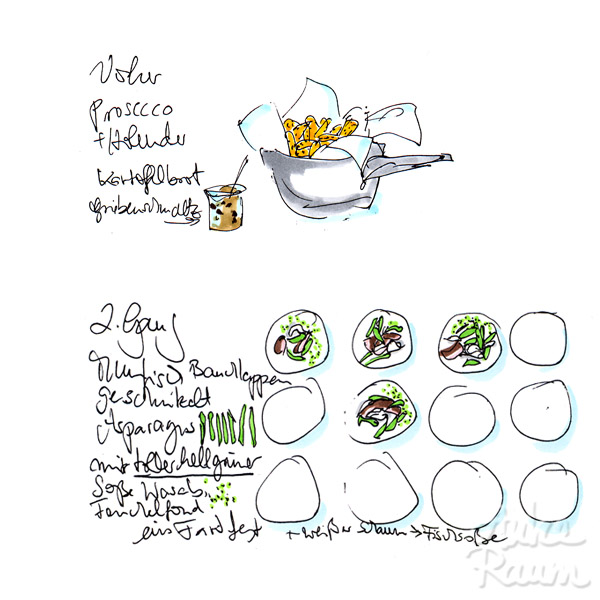 Vorher
Prosecco
+ Holunder
Kartoffelbrot
Griebenschmalz
2. Gang
Thunfisch Bauchlappen
geschmeckt
Asparagus
mit toller hellgrüner
Soße Wasabi
Fenchelfond
ein Farbfest + weißer Schaum → Fischsoße
Raum